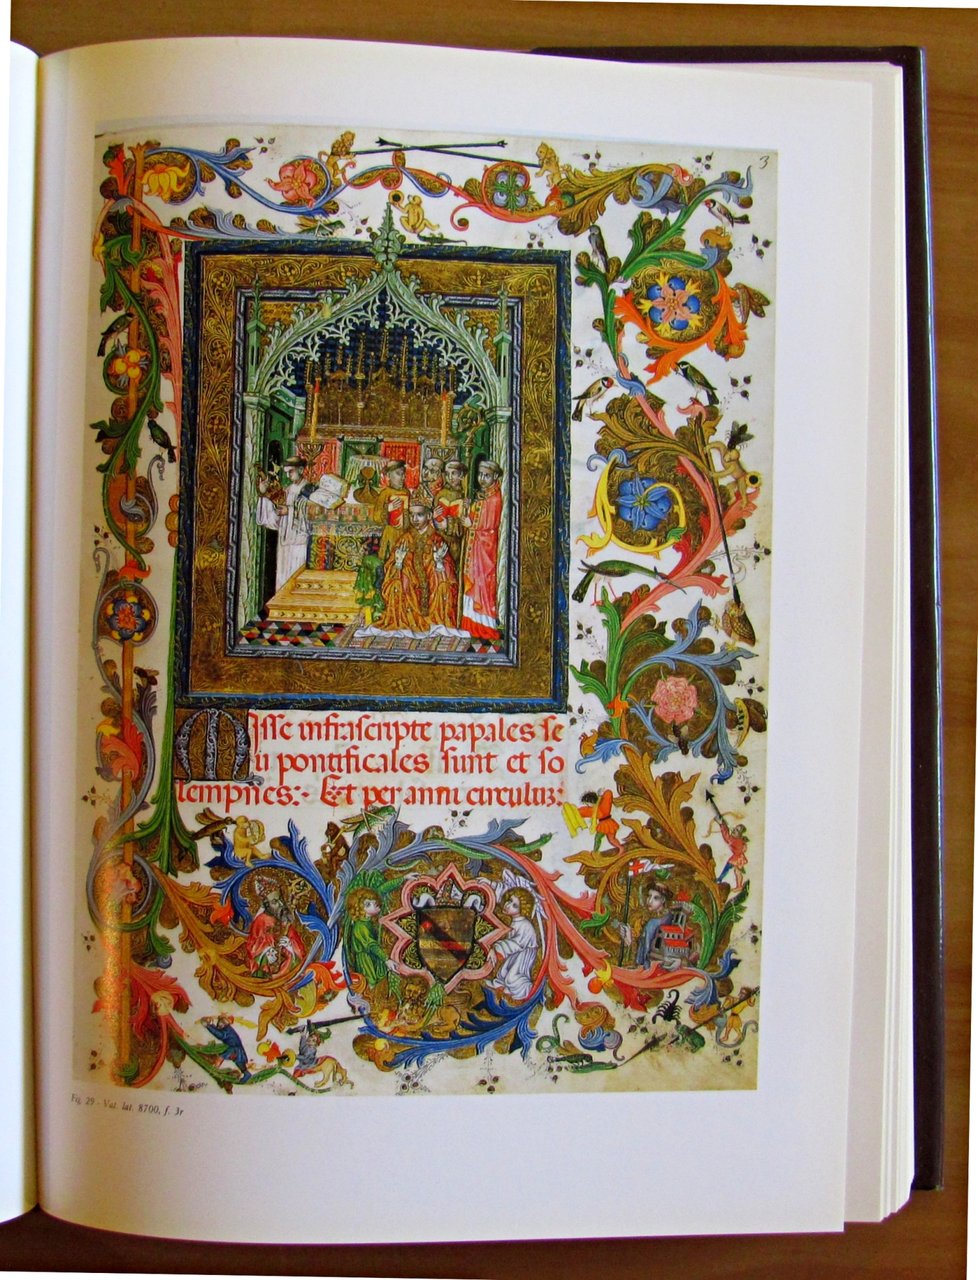 3
Misse infrascripte papales se
u pontificales sunt et so
lempnes: Et per anni circulum:
Fig. 29 - Vat. lat. 8700, f. 3r